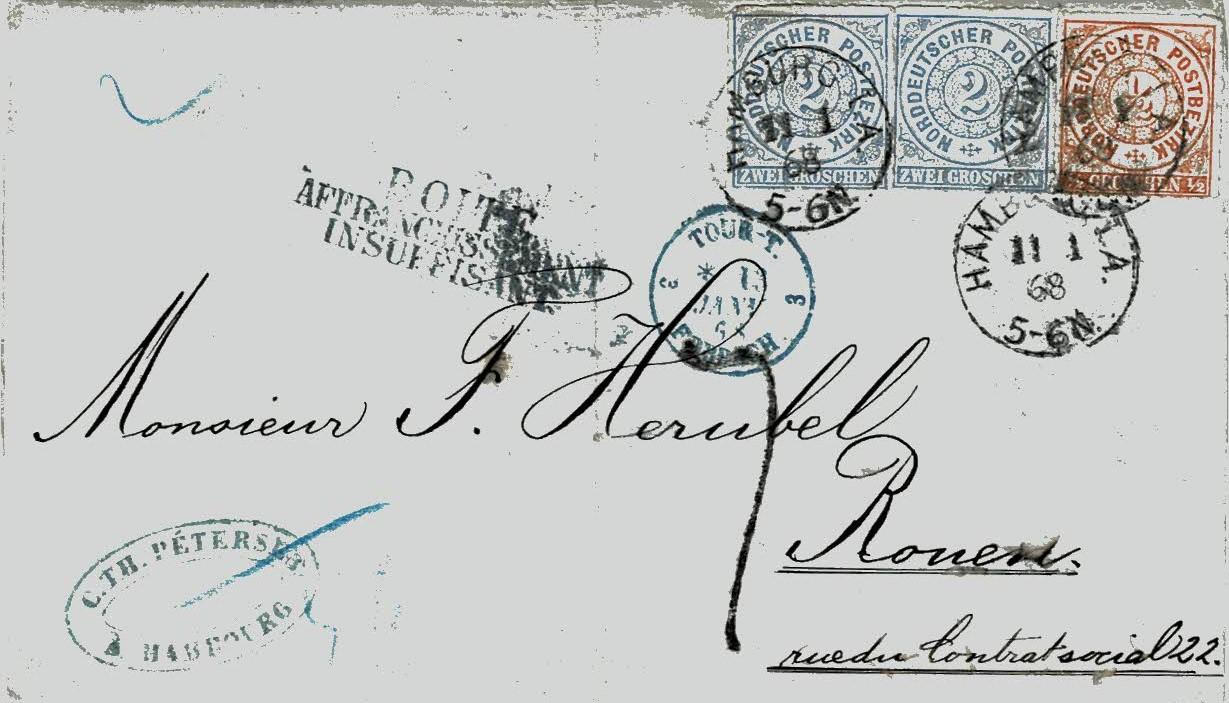 NORDDEUTSCHER POSTBEZIRK
2
ZWEI GROSCHEN
NORDDEUTSCHER POSTBEZIRK
2
ZWEI GROSCHEN
NORDDEUTSCHER POSTBEZIRK
1/2
GROSCHEN 1/2
HAMBURG I.A.
11 1
68
5-6N.
HAMBURG I.A.
11 1
68
5-6N.
BOITE
AFFRANCHISSEMENT
INSUFFISANT
TOUR-T.
3 3
JANV
68
FORBACH
Monsieur F. Herubel
Rouen.
rue du Contrat social 22.
C. TH. PÉTERSEN
A HAMBOURG